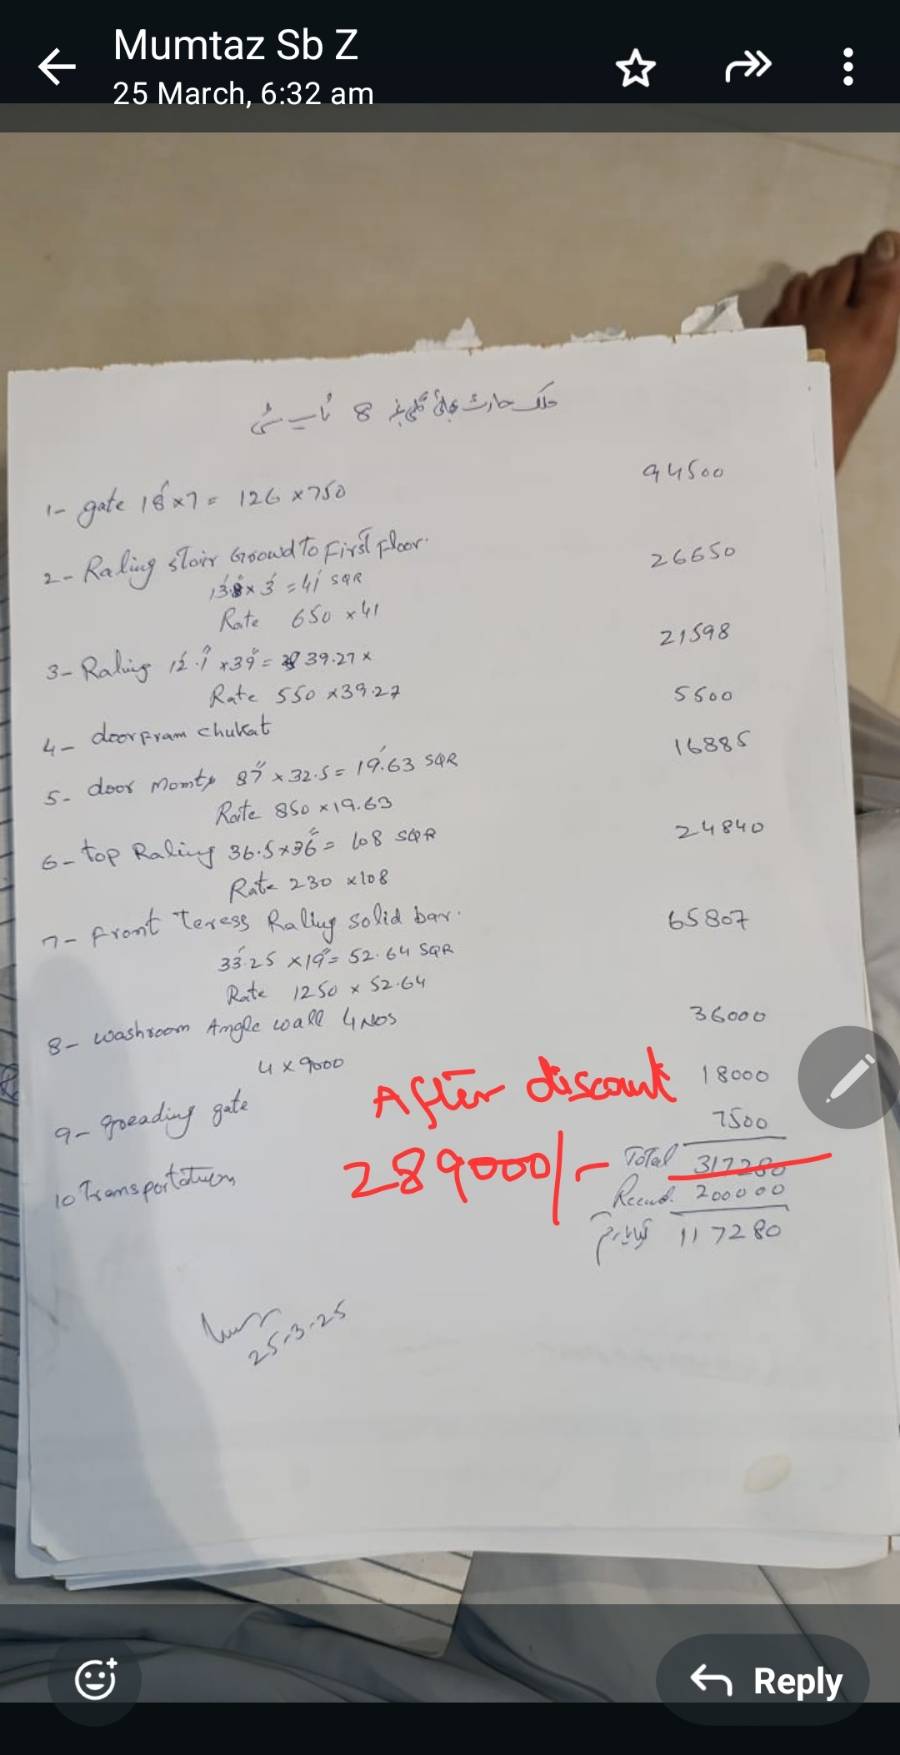 Mumtaz Sb Z
25 March, 6:32 am
ملک حارث بھائی گلی نمبر 8 ٹاپ سٹی
1- gate 18' x 7 = 126 x 750 94500
2- Raling stair Groowd To First Floor. 26650
13.8 x 3' = 41' SQR
Rate 650 x 41
3- Raling 12'.1" x 39" = 39.27 x 21598
Rate 550 x 39.27
4- doorfram chukat 5500
5- door Momty 87" x 32.5 = 19.63 SQR 16885
Rate 850 x 19.63
6- top Raling 36.5 x 36" = 108 SQR 24840
Rate 230 x 108
7- Front Teress Raling solid bar. 65807
33.25 x 19" = 52.64 SQR
Rate 1250 x 52.64
8- washroom Angle wall 4 Nos 36000
4 x 9000
After discount
9- goeading gate 18000
10 Transportation 7500
289000/-
Total 317280
Recvd. 200000
117280
25-3-25
Reply